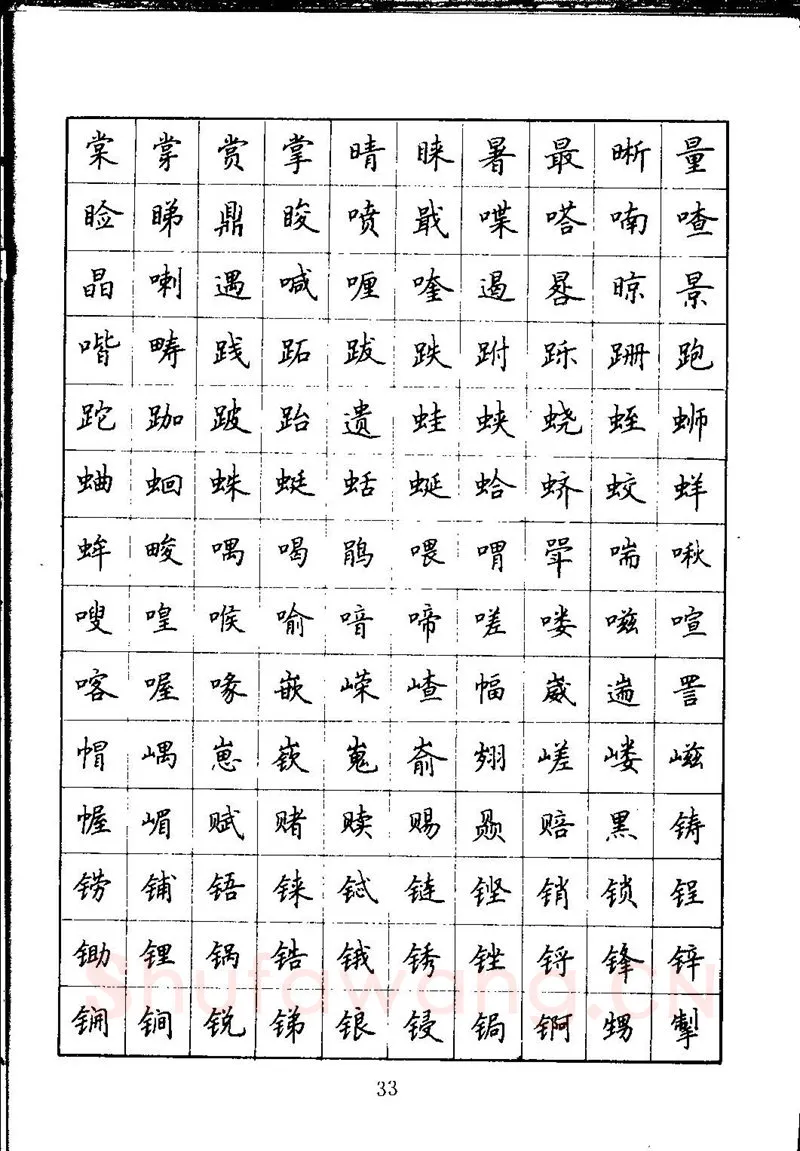 棠 掌 赏 掌 晴 睐 暑 最 晰 量
睑 睇 鼎 睃 喷 戢 喋 嗒 喃 喳
晶 喇 遇 喊 喱 喹 遏 晷 晾 景
喈 畴 践 跖 跋 跌 跗 跞 跚 跑
跎 跏 跛 跆 遗 蛙 蛱 蛲 蛭 蛳
蛐 蛔 蛛 蜓 蛞 蜒 蛤 蛴 蛟 蛘
蛑 畯 喁 喝 鹃 喂 喟 斝 喘 啾
嗖 喤 喉 喻 喑 啼 嗟 喽 嗞 喧
喀 喔 喙 嵌 嵘 嵖 幅 崴 遄 詈
帽 嵎 崽 嵚 嵬 嵛 翙 嵯 嵝 嵫
幄 嵋 赋 赌 赎 赐 赑 赔 黑 铸
铹 铺 铻 铼 铽 链 铿 销 锁 锃
锄 锂 锅 锆 锇 锈 锉 锊 锋 锌
锎 锏 锐 锑 锒 锓 锔 锕 甥 掣
33
Shufawang.CN